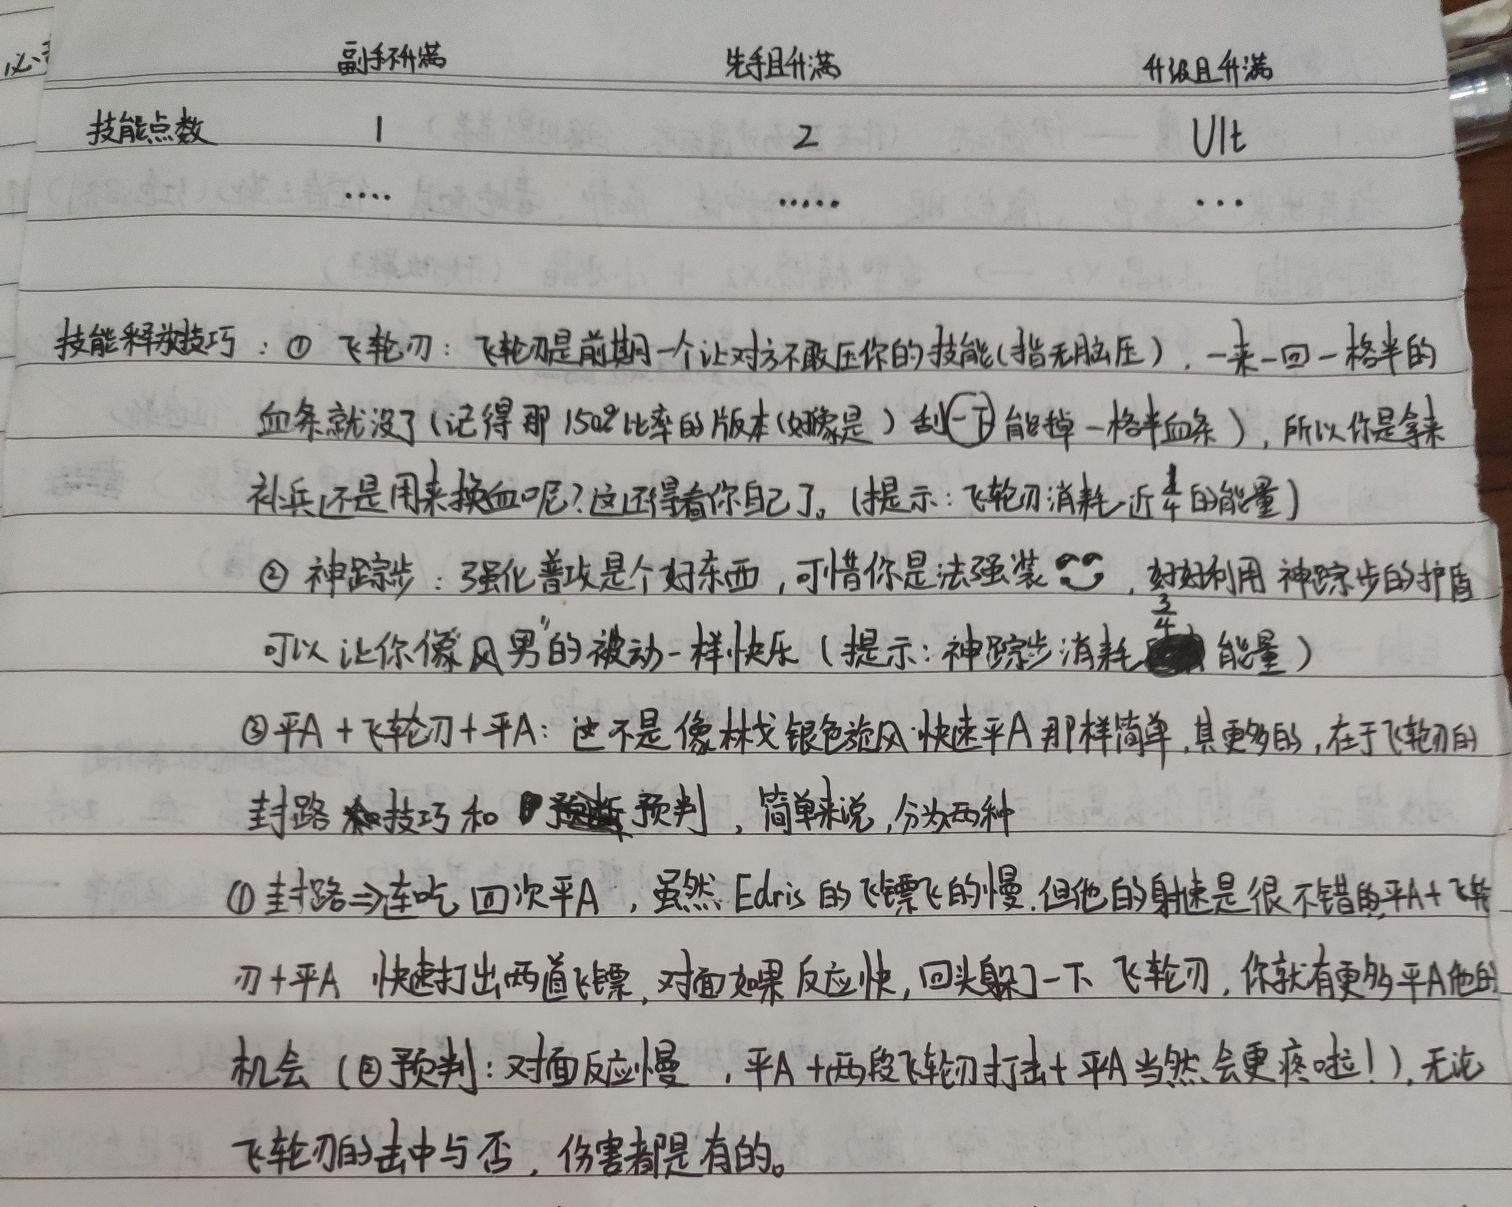 必
副手不升满 先手且升满 升级且升满
技能点数 1 2 Ult
.... ..... ...
技能释放技巧：① 飞轮刃：飞轮刃是前期一个让对方不敢压你的技能(指无脑压)，一来一回一格半的
血条就没了(记得那150%比率的版本(好像是)刮一下能掉一格半血条)，所以你是拿来
补兵还是用来换血呢?这还得看你自己了。(提示：飞轮刃消耗近1/4的能量)
② 神踪步：强化普攻是个好东西，可惜你是法强装，好好利用神踪步的护盾
可以让你像"风男"的被动一样快乐(提示：神踪步消耗3/4能量)
③平A+飞轮刃+平A：这不是像林戈银色旋风快速平A那样简单，其更多的，在于飞轮刃的
封路技巧和预判，简单来说，分为两种
①封路⇒连吃四次平A，虽然Edris的飞镖飞的慢，但他的射速是很不错的，平A+飞轮
刃+平A 快速打出两道飞镖，对面如果反应快，回头躲了一下飞轮刃，你就有更多平A他的
机会(②预判：对面反应慢，平A+两段飞轮刃打击+平A当然会更疼啦!)，无论
飞轮刃的击中与否，伤害都是有的。